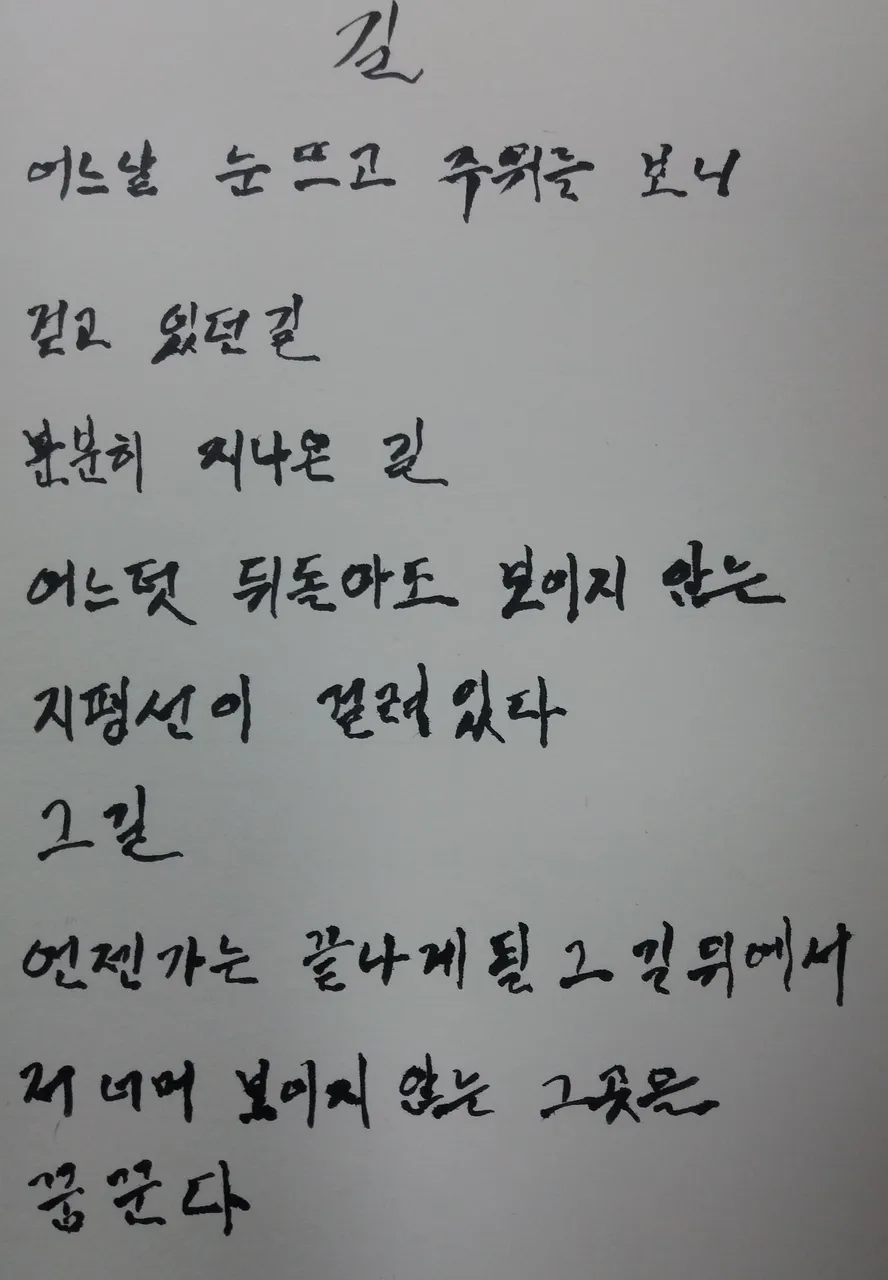 길
어느날 눈 뜨고 주위를 보니
걷고 있던 길
분분히 지나온 길
어느덧 뒤돌아도 보이지 않는
지평선이 걸려있다
그 길
언젠가는 끝나게 될 그 길 뒤에서
저 너머 보이지 않는 그곳을
꿈꾼다